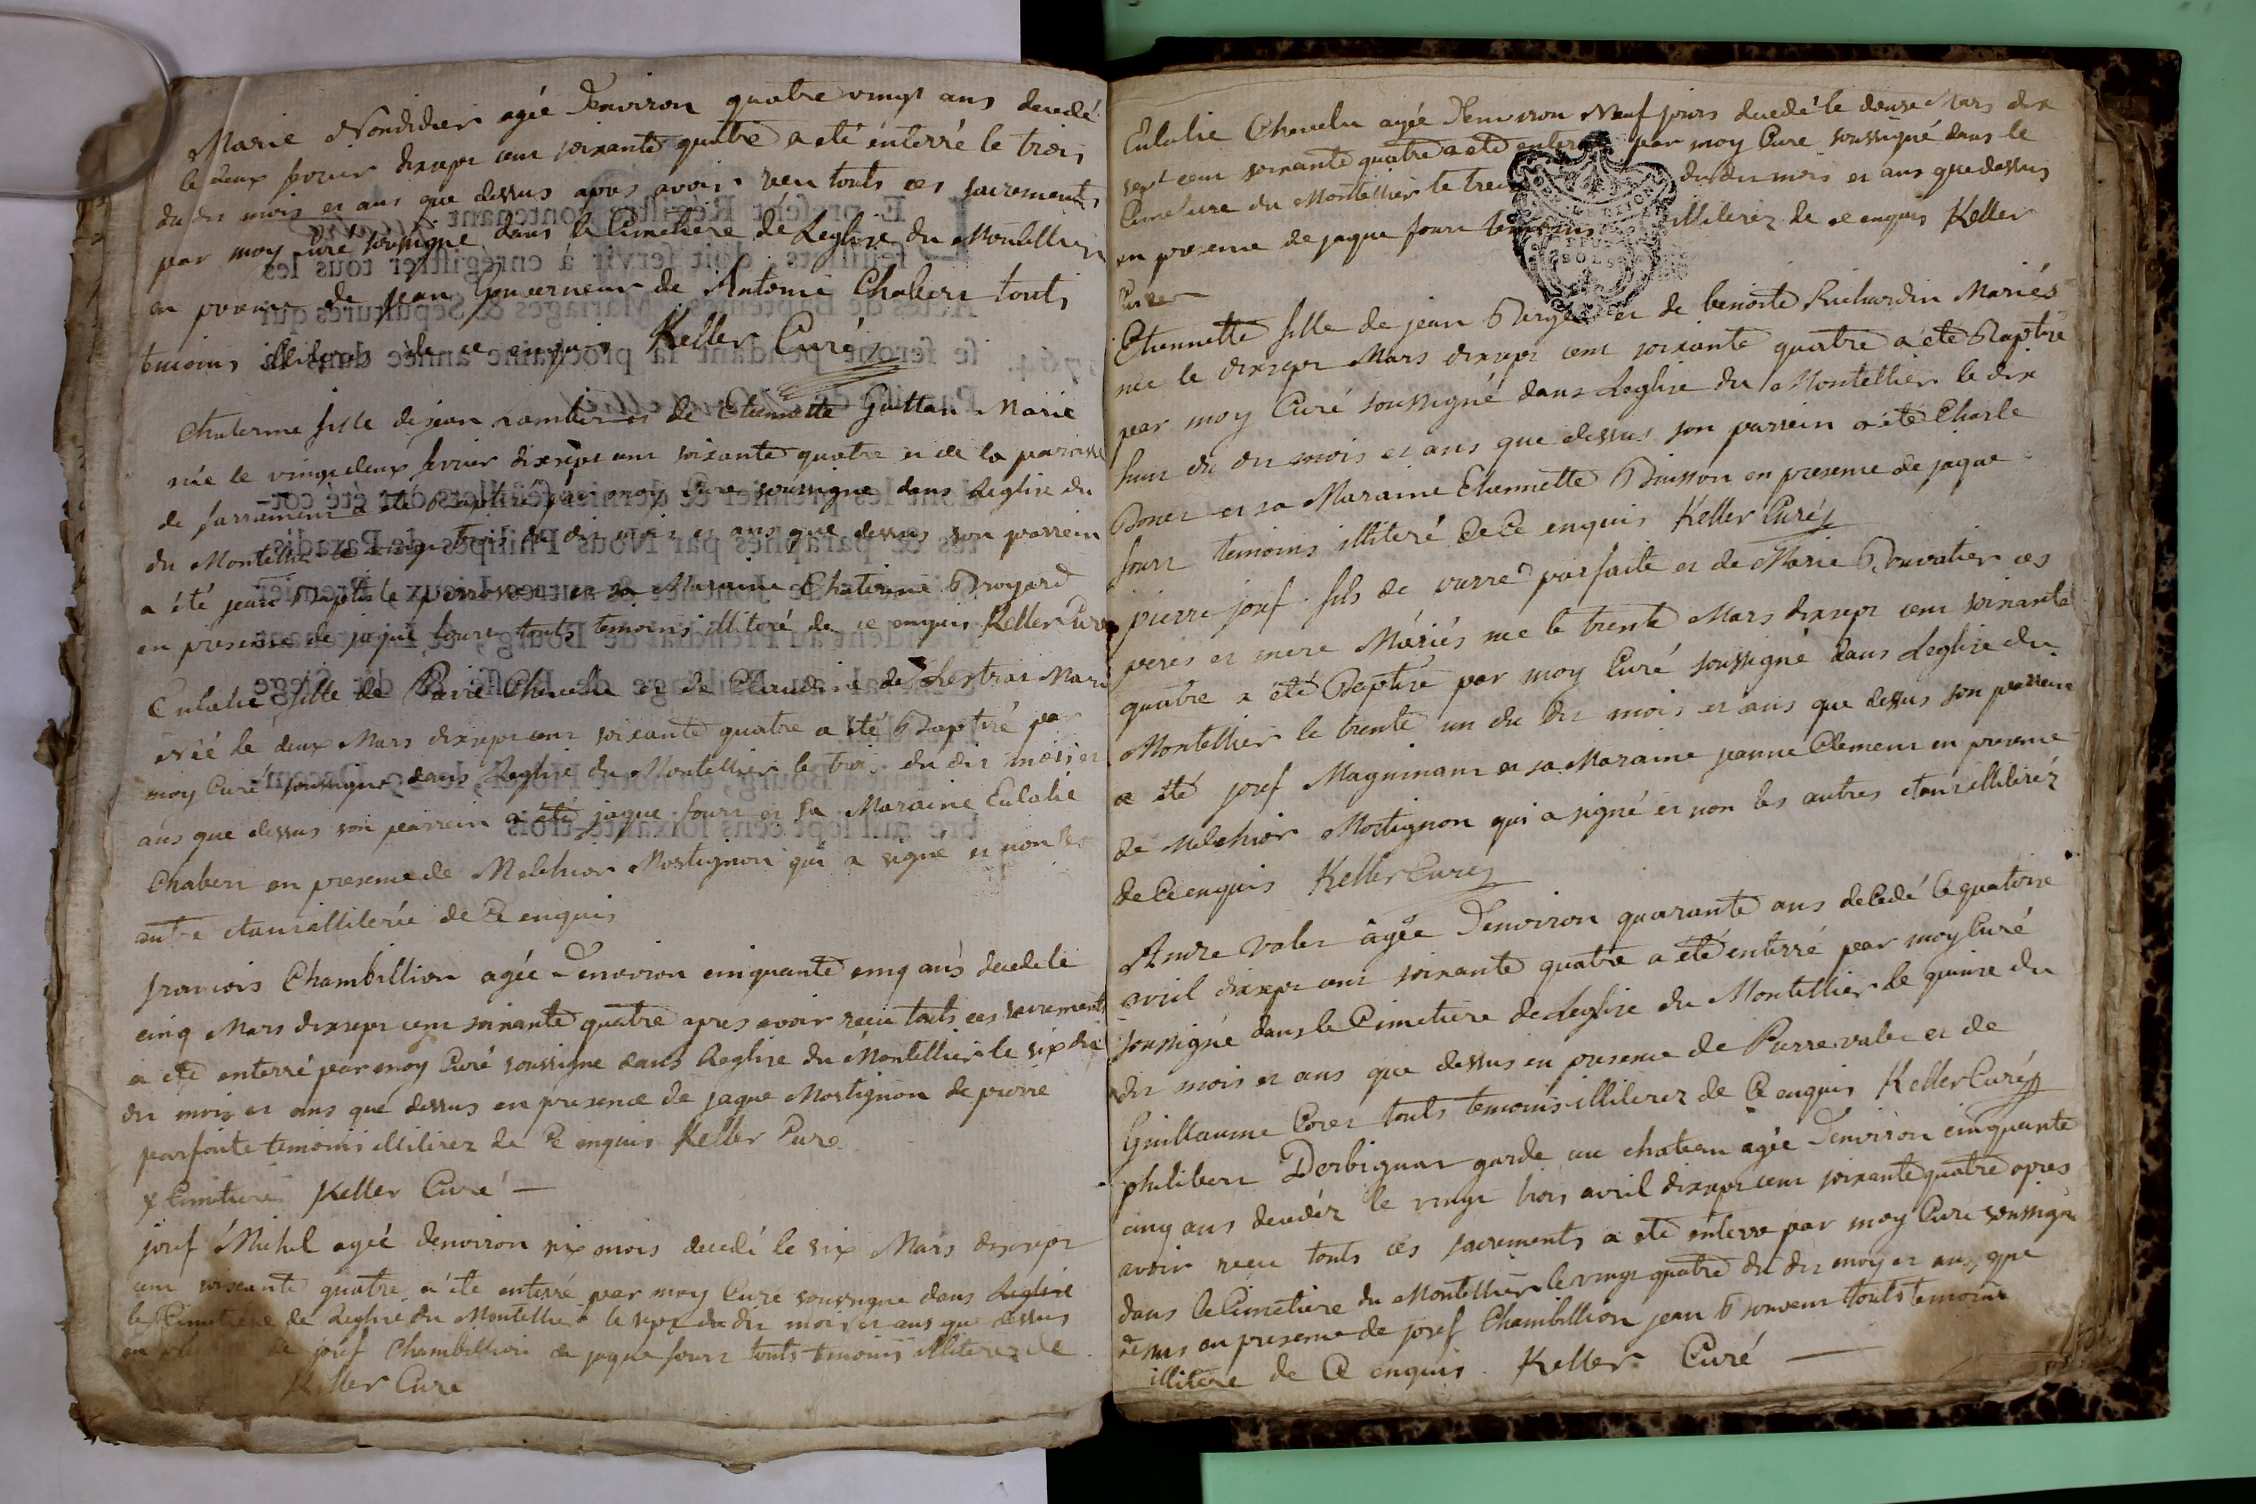 Marie Nondidier agée d'environ quatre vingt ans decedé
le deux fevrier dixsept cent soixante quatre a eté énterré le trois
du dit mois et ans que dessus apres avoir recu touts ces sacrements
par moy Curé soussigne dans le Cimetiere de Leglise du Montellier
en presence de jean Gouverneur de Antoine Chabert touts
temoins illiterés de ce enquis Keller Curé
Chaterine fille de jean rambert et de Etiennette Guttan Marié
née le vingt deux fevrier dixsept cent soixante quatre et de la paroisse
de a été Baptisé par moy Curé soussigne dans Leglise du
du Montellier le vingt trois du dit mois et ans que dessus son parrein
a été jean Baptiste et sa Maraine Chaterine Broyard
en presence de jaque fourt touts temoins illiteré de ce enquis Keller Curé
Eulalie fille de Pierre Chevelu et de Claudine de Mari
Néé le deux Mars dixsept cent soixante quatre a été Baptisé par
moy Curé soussigne dans Leglise du Montellier le trois du dit mois et
ans que dessus son parrein a été jaque fourt et sa Maraine Eulalie
Chabert en presence de Melchior Mortignon qui a signé et non les
autre etant illiterée de Ce enquis
francois Chambillion agée d'environ cinquante cinq ans decede le
cinq Mars dixsept cent soixante quatre apres avoir recu touts ces sacrements
a eté enterré par moy Curé soussigne dans Leglise du Montellier le six du
dit mois et ans que dessus en presence de jaque Mortignon de pierre
parfaite temoins illiterez de Ce enquis Keller Cure
x Cimitiere Keller Curé
josef Michel agéé denviron six mois decedé le six Mars dixsept
cent soixante quatre a été enterré par moy Curé soussigne dans Leglise
le Cimetiere de Leglise du Montellier le sept du dit mois et ans que dessus
en de josef Chambillion de jaque fourt touts temoins illiterez de
Keller Cure
Eulalie Chevelu agée d'environ Neuf jours decedé le douze Mars dix
sept cent soixante quatre a eté enterré par moy Curé soussigné dans le
Cimetiere du Montellier le treize du dit mois et ans que dessus
en presence de jaque fourt temoins illiterez de ce enquis Keller
Curé
Etiennette fille de jean Berger et de benoite Richardin Mariés
née le dixsept Mars dixsept cent soixante quatre a été Baptisé
par moy Curé soussigné dans Leglise du Montellier le dix
huit du dit mois et ans que dessus son parrein a été Charle
Bonet et sa Maraine Etiennette Buisson en presence de jaque
fourt temoins illiteré de Ce enquis Keller Curé
pierre josef fils de pierre parfaite et de Marie Bouvatier ces
peres et mere Mariés né le trente Mars dixsept cent soixante
quatre a été Baptisé par moy Curé soussigné dans Leglise du
Montellier le trente un du dit mois et ans que dessus son parrein
a été josef et sa Maraine jeanne Clement en presence
de Melchior Mortignon qui a signé et non les autres etant illiteréz
de Ce enquis Keller Curé
Andre valet agée d'environ quarante ans decedé le quatorze
avril dixsept cent soixante quatre a été enterré par moy Curé
soussigné dans le Cimetiere de Leglise du Montellier le quinze du
dit mois et ans que dessus en presence de Pierre valet et de
Guillaume Coret touts temoins illiterez de Ce enquis Keller Curé
philibert Derbignar garde au chateau agée d'environ cinquante
cinq ans decedéz le vingt trois avril dixsept cent soixante quatre apres
avoir recu touts ces sacrements a eté enterré par moy Curé soussigné
dans le Cimetiere du Montellier le vingt quatre du dit moy et ans que
dessus en presence de josef Chambillion jean Bouvent touts temoins
illiteré de Ce enquis Keller Curé